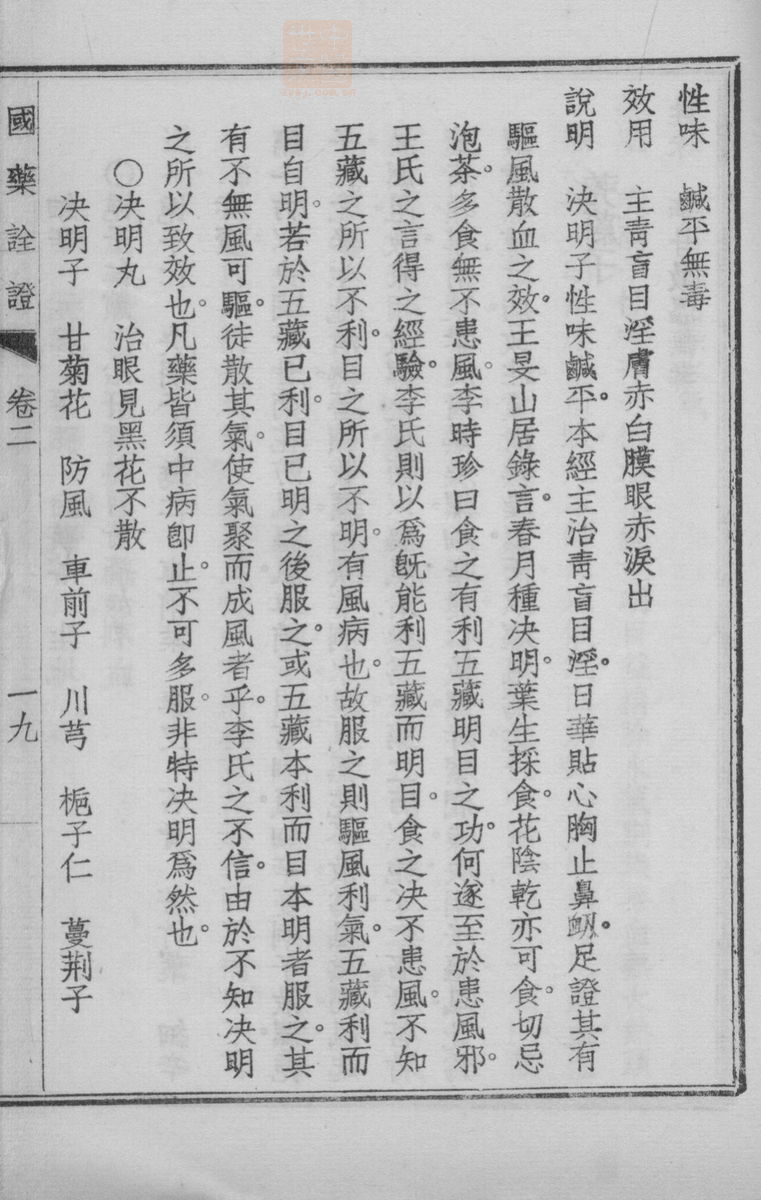 性味　鹹平無毒
效用　主靑盲目淫膚赤白膜眼赤淚出
說明　决明子性味鹹平。本經主治靑盲目淫。日華貼心胸止鼻衂。足證其有
驅風散血之效。王旻山居錄言。春月種决明。葉生採食。花陰乾亦可食。切忌
泡茶。多食無不患風。李時珍曰食之有利五藏明目之功。何遂至於患風邪。
王氏之言得之經驗。李氏則以爲旣能利五藏而明目。食之决不患風。不知
五藏之所以不利。目之所以不明。有風病也。故服之則驅風利氣。五藏利而
目自明。若於五藏已利。目已明之後服之。或五藏本利而目本明者服之。其
有不無風可驅。徒散其氣。使氣聚而成風者乎。李氏之不信。由於不知决明
之所以致效也。凡藥皆須中病卽止。不可多服。非特决明爲然也。
〇决明丸　治眼見黑花不散
决明子　甘菊花　防風　車前子　川芎　梔子仁　蔓荆子
國藥詮證　卷二　一九